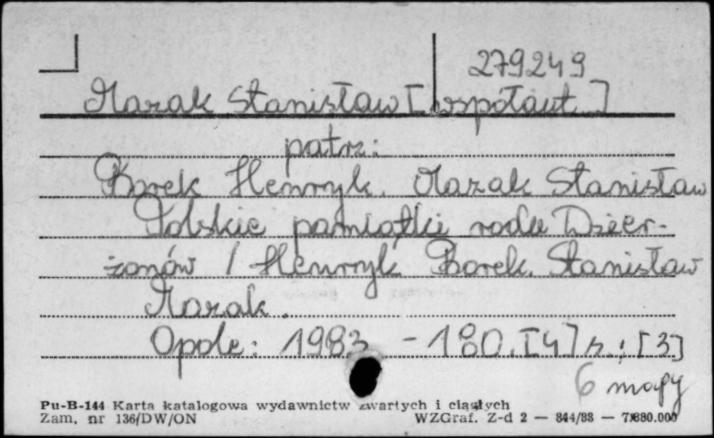 279249
Mazak Stanisław [współaut.]
patrz:
Borek Henryk, Mazak Stanisław
Polskie pamiątki rodu Dzier-
żonów / Henryk Borek, Stanisław
Mazak.
Opole: 1983. - 180, [4] s.; [3]
6 mapy
Pu-B-144 Karta katalogowa wydawnictw zwartych i ciągłych
Zam. nr 136/DW/ON WZGraf. Z-d 2 — 844/83 — 7.880.000